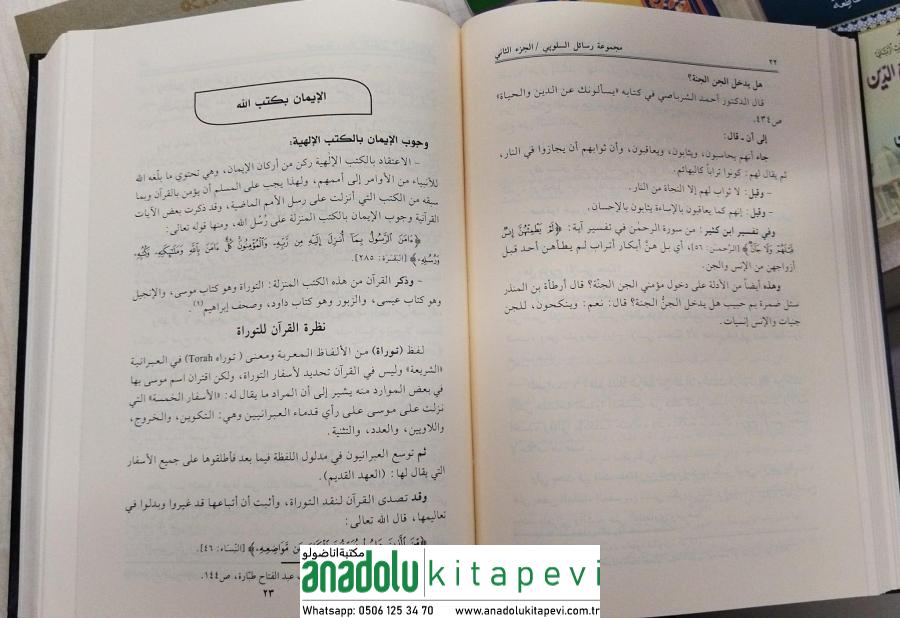 مجموعة رسائل السلوبي / الجزء الثاني
٢٢
هل يدخل الجن الجنة؟
قال الدكتور أحمد الشرباصي في كتابه «يسألونك عن الدين والحياة»
ص٤٣٤.
إلى أن ـ قال:
جاء أنهم يحاسبون، ويثابون، ويعاقبون، وأن ثوابهم أن يجازوا في النار،
ثم يقال لهم: كونوا تراباً كالبهائم.
- وقيل: لا ثواب لهم إلا النجاة من النار.
- وقيل: إنهم كما يعاقبون بالإساءة يثابون بالإحسان.
وفي تفسير ابن كثير: من سورة الرحمن في تفسير آية: ﴿لَمْ يَطْمِثْهُنَّ إِنسٌ
قَبْلَهُمْ وَلَا جَانٌّ﴾ [الرَّحمن: ٥٦]، أي بل هنَّ أبكار أتراب لم يطأهن أحد قبل
أزواجهن من الإنس والجن.
وهذه أيضاً من الأدلة على دخول مؤمني الجن الجنَّة؟ قال أرطأة بن المنذر
سئل ضمرة بم حبيب هل يدخل الجنُّ الجنة؟ قال: نعم: وينكحون، للجن
جنيات وللإنس إنسيات.
الإيمان بكتب الله
وجوب الإيمان بالكتب الإلهية:
- الاعتقاد بالكتب الإلهية ركن من أركان الإيمان، وهي تحتوي ما بلَّغه الله
للأنبياء من الأوامر إلى أممهم، ولهذا يجب على المسلم أن يؤمن بالقرآن وبما
سبقه من الكتب التي أنزلت على رسل الأمم الماضية، وقد ذكرت بعض الآيات
القرآنية وجوب الإيمان بالكتب المنزلة على رُسُل الله، ومنها قوله تعالى:
﴿ءَامَنَ ٱلرَّسُولُ بِمَآ أُنزِلَ إِلَيْهِ مِن رَّبِّهِۦ وَٱلْمُؤْمِنُونَ كُلٌّ ءَامَنَ بِٱللَّهِ وَمَلَٰٓئِكَتِهِۦ وَكُتُبِهِۦ
وَرُسُلِهِۦ﴾ [البَقَرَة: ٢٨٥].
- وذكر القرآن من هذه الكتب المنزلة: التوراة وهو كتاب موسى، والإنجيل
وهو كتاب عيسى، والزبور وهو كتاب داود، وصحف إبراهيم(١).
نظرة القرآن للتوراة
لفظ (توراة) من الألفاظ المعربة ومعنى (توراه Torah) في العبرانية
«الشريعة» وليس في القرآن تحديد لأسفار التوراة، ولكن اقتران اسم موسى بها
في بعض الموارد منه يشير إلى أن المراد ما يقال له: «الأسفار الخمسة» التي
نزلت على موسى على رأي قدماء العبرانيين وهي: التكوين، والخروج،
واللاويين، والعدد، والتثنية.
ثم توسع العبرانيون في مدلول اللفظة فيما بعد فأطلقوها على جميع الأسفار
التي يقال لها: (العهد القديم).
وقد تصدى القرآن لنقد التوراة، وأثبت أن أتباعها قد غيروا وبدلوا في
تعاليمها، قال الله تعالى:
مَّوَاضِعِهِۦ﴾ [النِّسَاء: ٤٦].
عبد الفتاح طبّارة، ص١٤٤.
٢٣
مكتبة اناضولو
anadolu kitapevi
Whatsapp: 0506 125 34 70 www.anadolukitapevi.com.tr